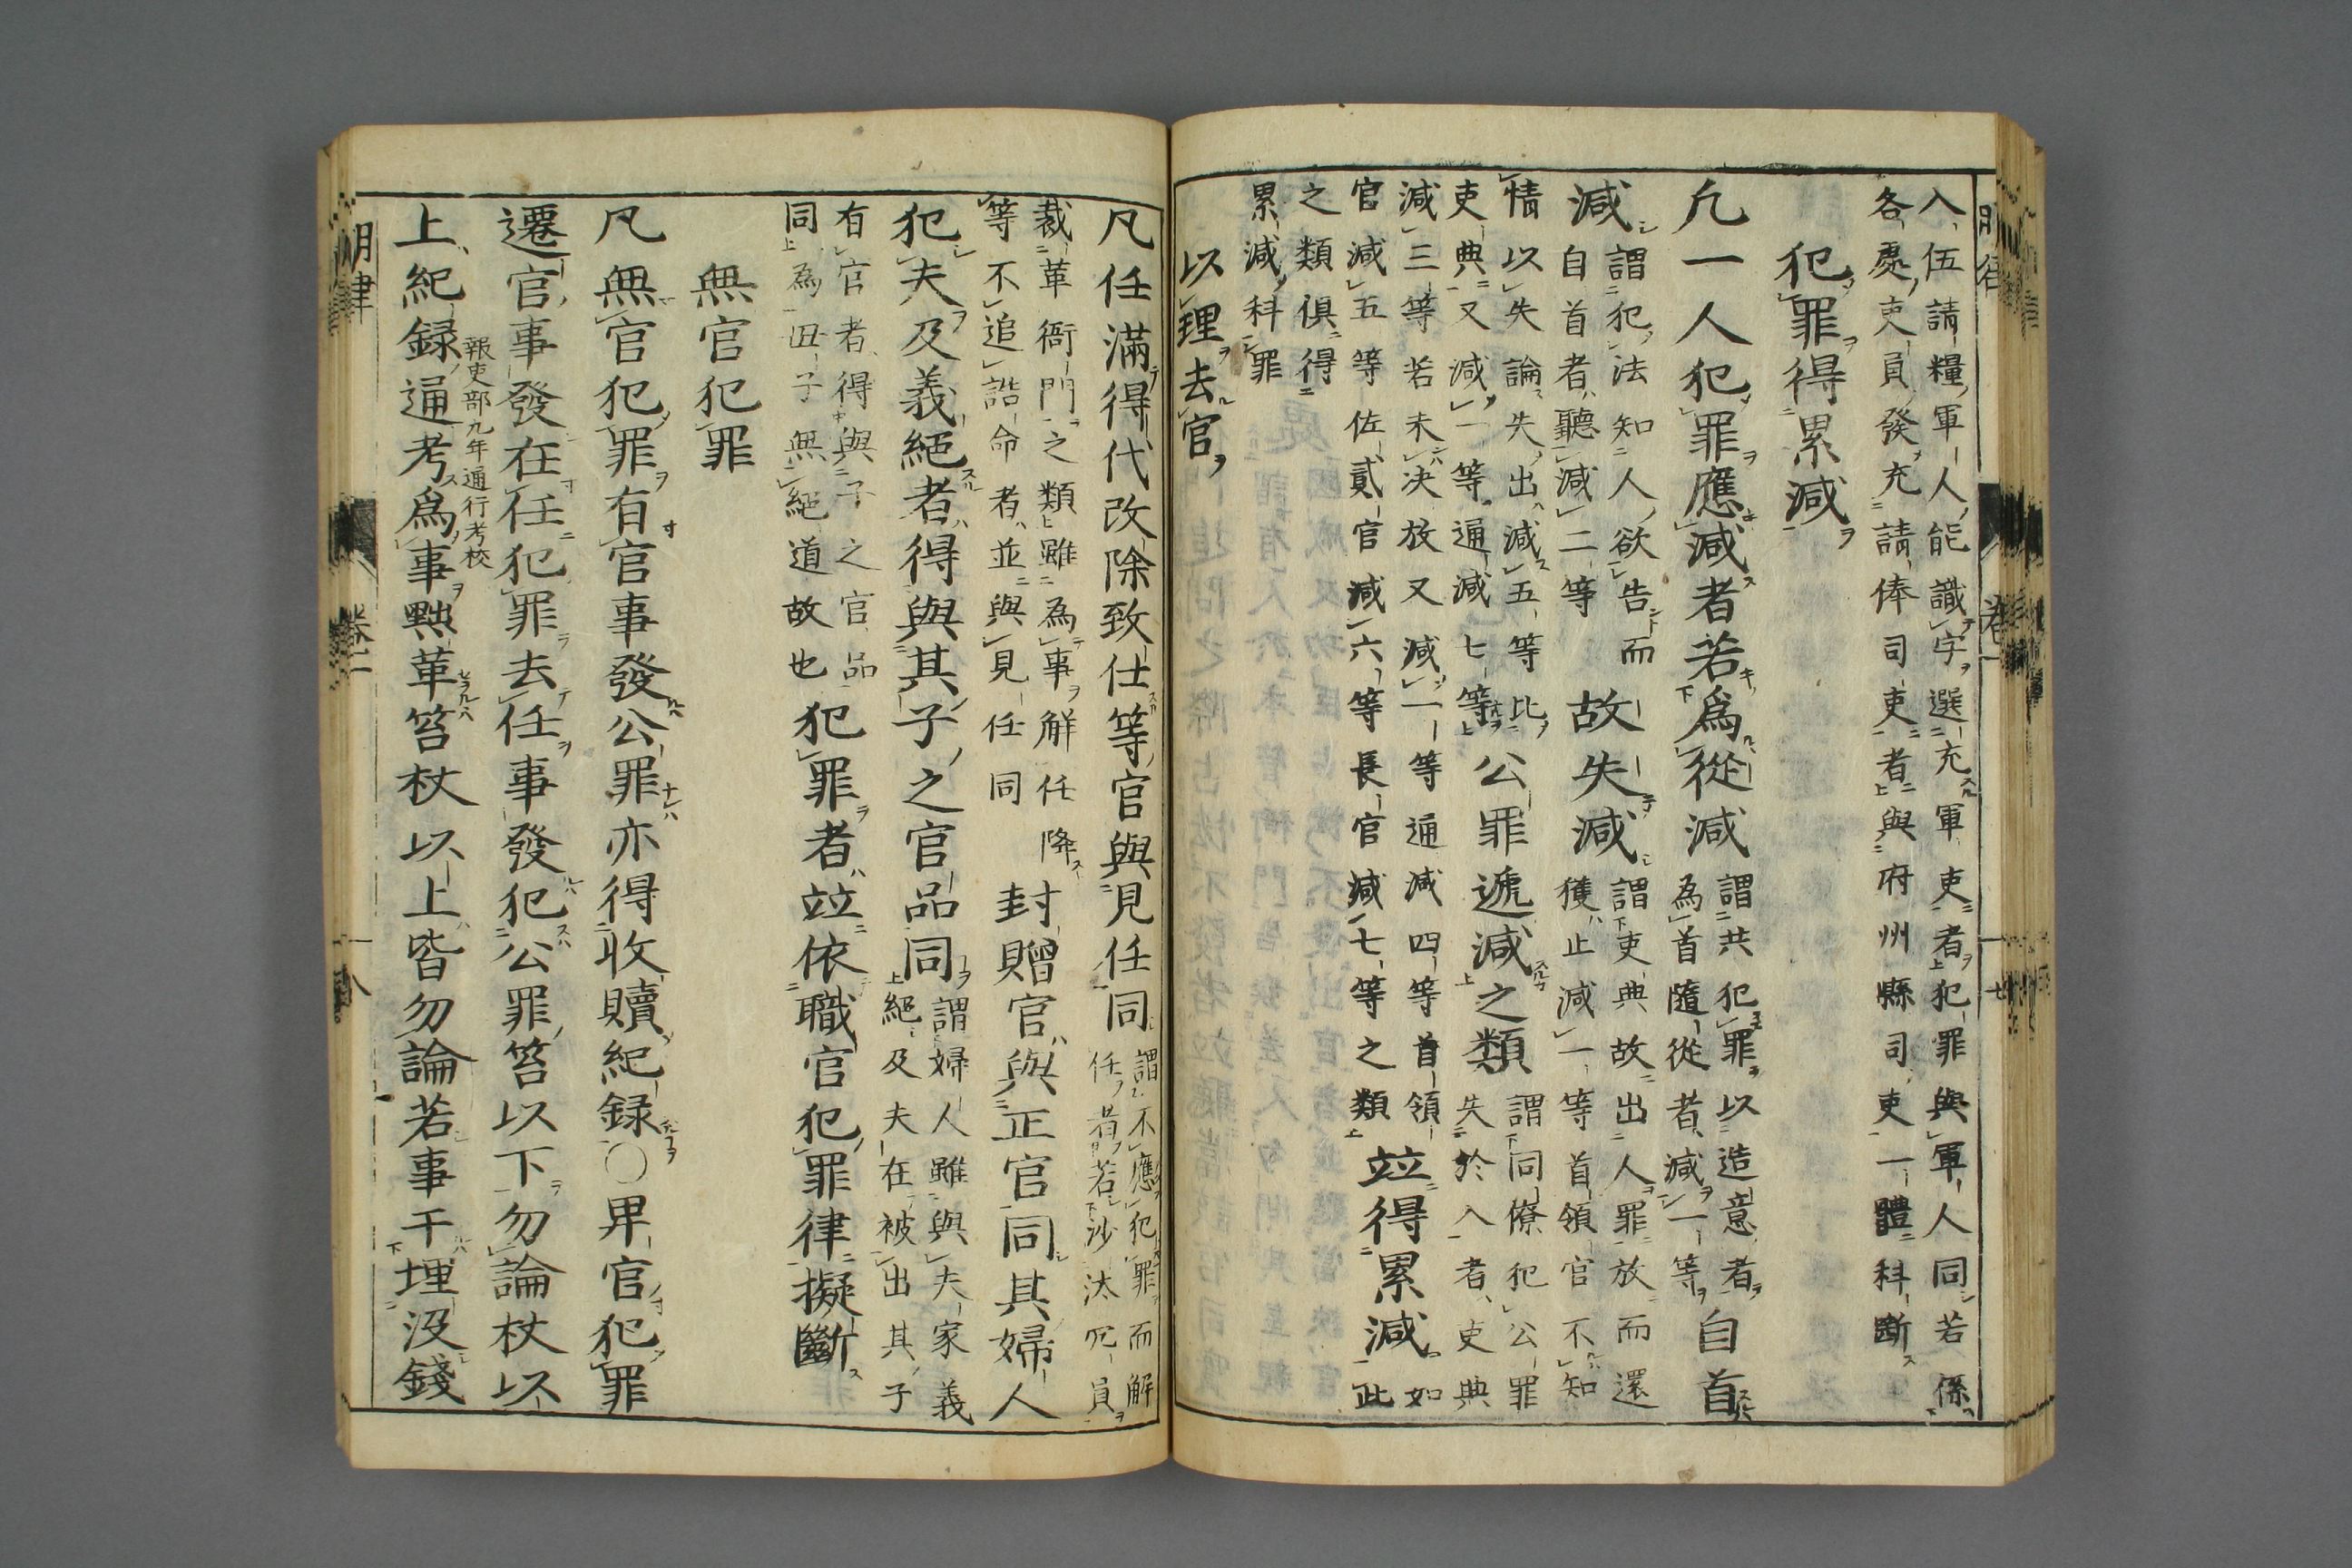 入伍請糧軍人能識字選充軍吏者犯罪與軍人同若係
各處吏員發充請俸司吏者與府州縣司吏一體科斷
犯罪得累減
凡一人犯罪應減者若爲從減謂共犯罪以造意者爲首隨從者減一等自首
減謂犯法知人欲告而自首者聽減二等故失減謂吏典故出人罪放而還獲止減一等首領官不知
情以失論失出減五等比吏典又減一等通減七等公罪遞減之類謂同僚犯公罪失於入者吏典
減三等若未決放又減一等通減四等首領官減五等佐貳官減六等長官減七等之類竝得累減如此
之類俱得累減科罪
以理去官
凡任滿得代改除致仕等官與見任同謂不應犯罪而解任者若沙汰冗員
裁革衙門之類雖為事解任降等不追誥命者並與見任同封贈官與正官同其婦人
犯夫及義絕者得與其子之官品同謂婦人雖與夫家義絕及夫在被出其子
有官者得與子之官品同為毌子無絕道故也犯罪者竝依職官犯罪律擬斷
無官犯罪
凡無官犯罪有官事發公罪亦得收贖紀録○卑官犯罪
遷官事發在任犯罪去任事發犯公罪笞以下勿論杖以
上紀録通考爲事黜革笞杖以上皆勿論若事干埋沒錢
報吏部九年通行考校
明律
卷二
十八